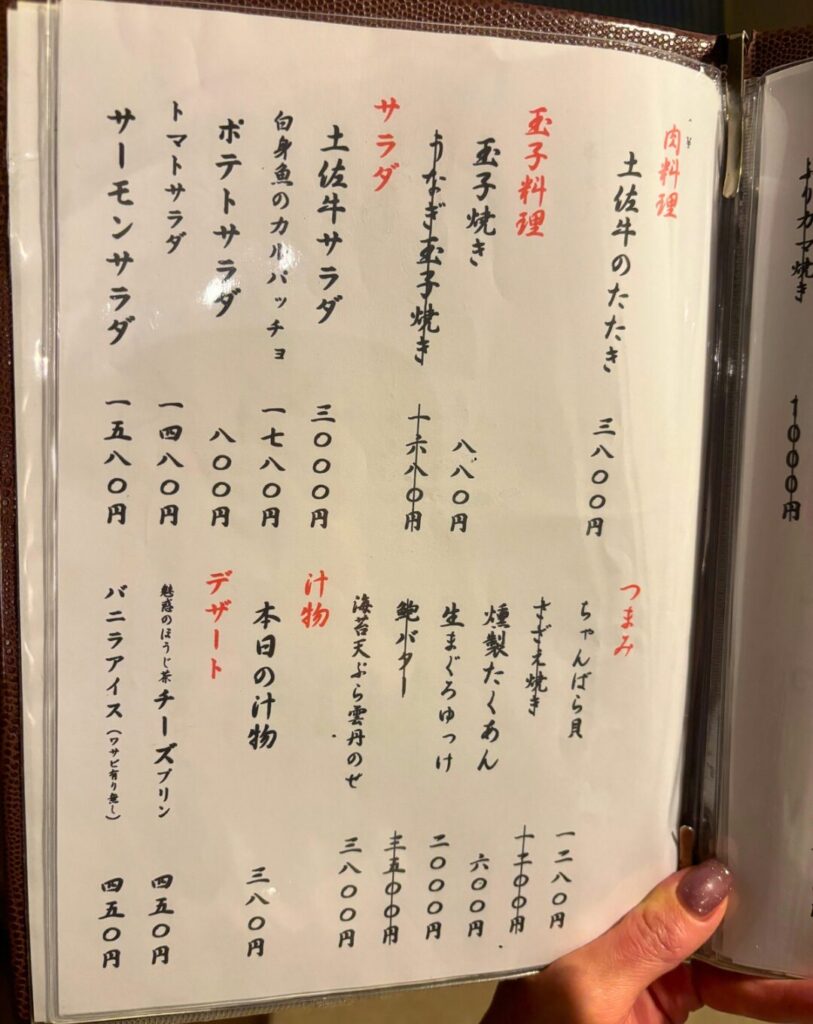 トリカマ焼き 1000円
肉料理
土佐牛のたたき 三八〇〇円
玉子料理
玉子焼き 八八〇円
うなぎ玉子焼き 一六八〇円
サラダ
土佐牛サラダ 三〇〇〇円
白身魚のカルパッチョ 一七八〇円
ポテトサラダ 八〇〇円
トマトサラダ 一四八〇円
サーモンサラダ 一五八〇円
つまみ
ちゃんばら貝 一二八〇円
さざえ焼き 一二〇〇円
燻製たくあん 六〇〇円
生まぐろゆっけ 二〇〇〇円
鮑バター 三五〇〇円
海苔天ぷら雲丹のせ 三八〇〇円
汁物
本日の汁物 三八〇円
デザート
魅惑のほうじ茶チーズプリン 四五〇円
バニラアイス(ワサビ有り無し) 四五〇円